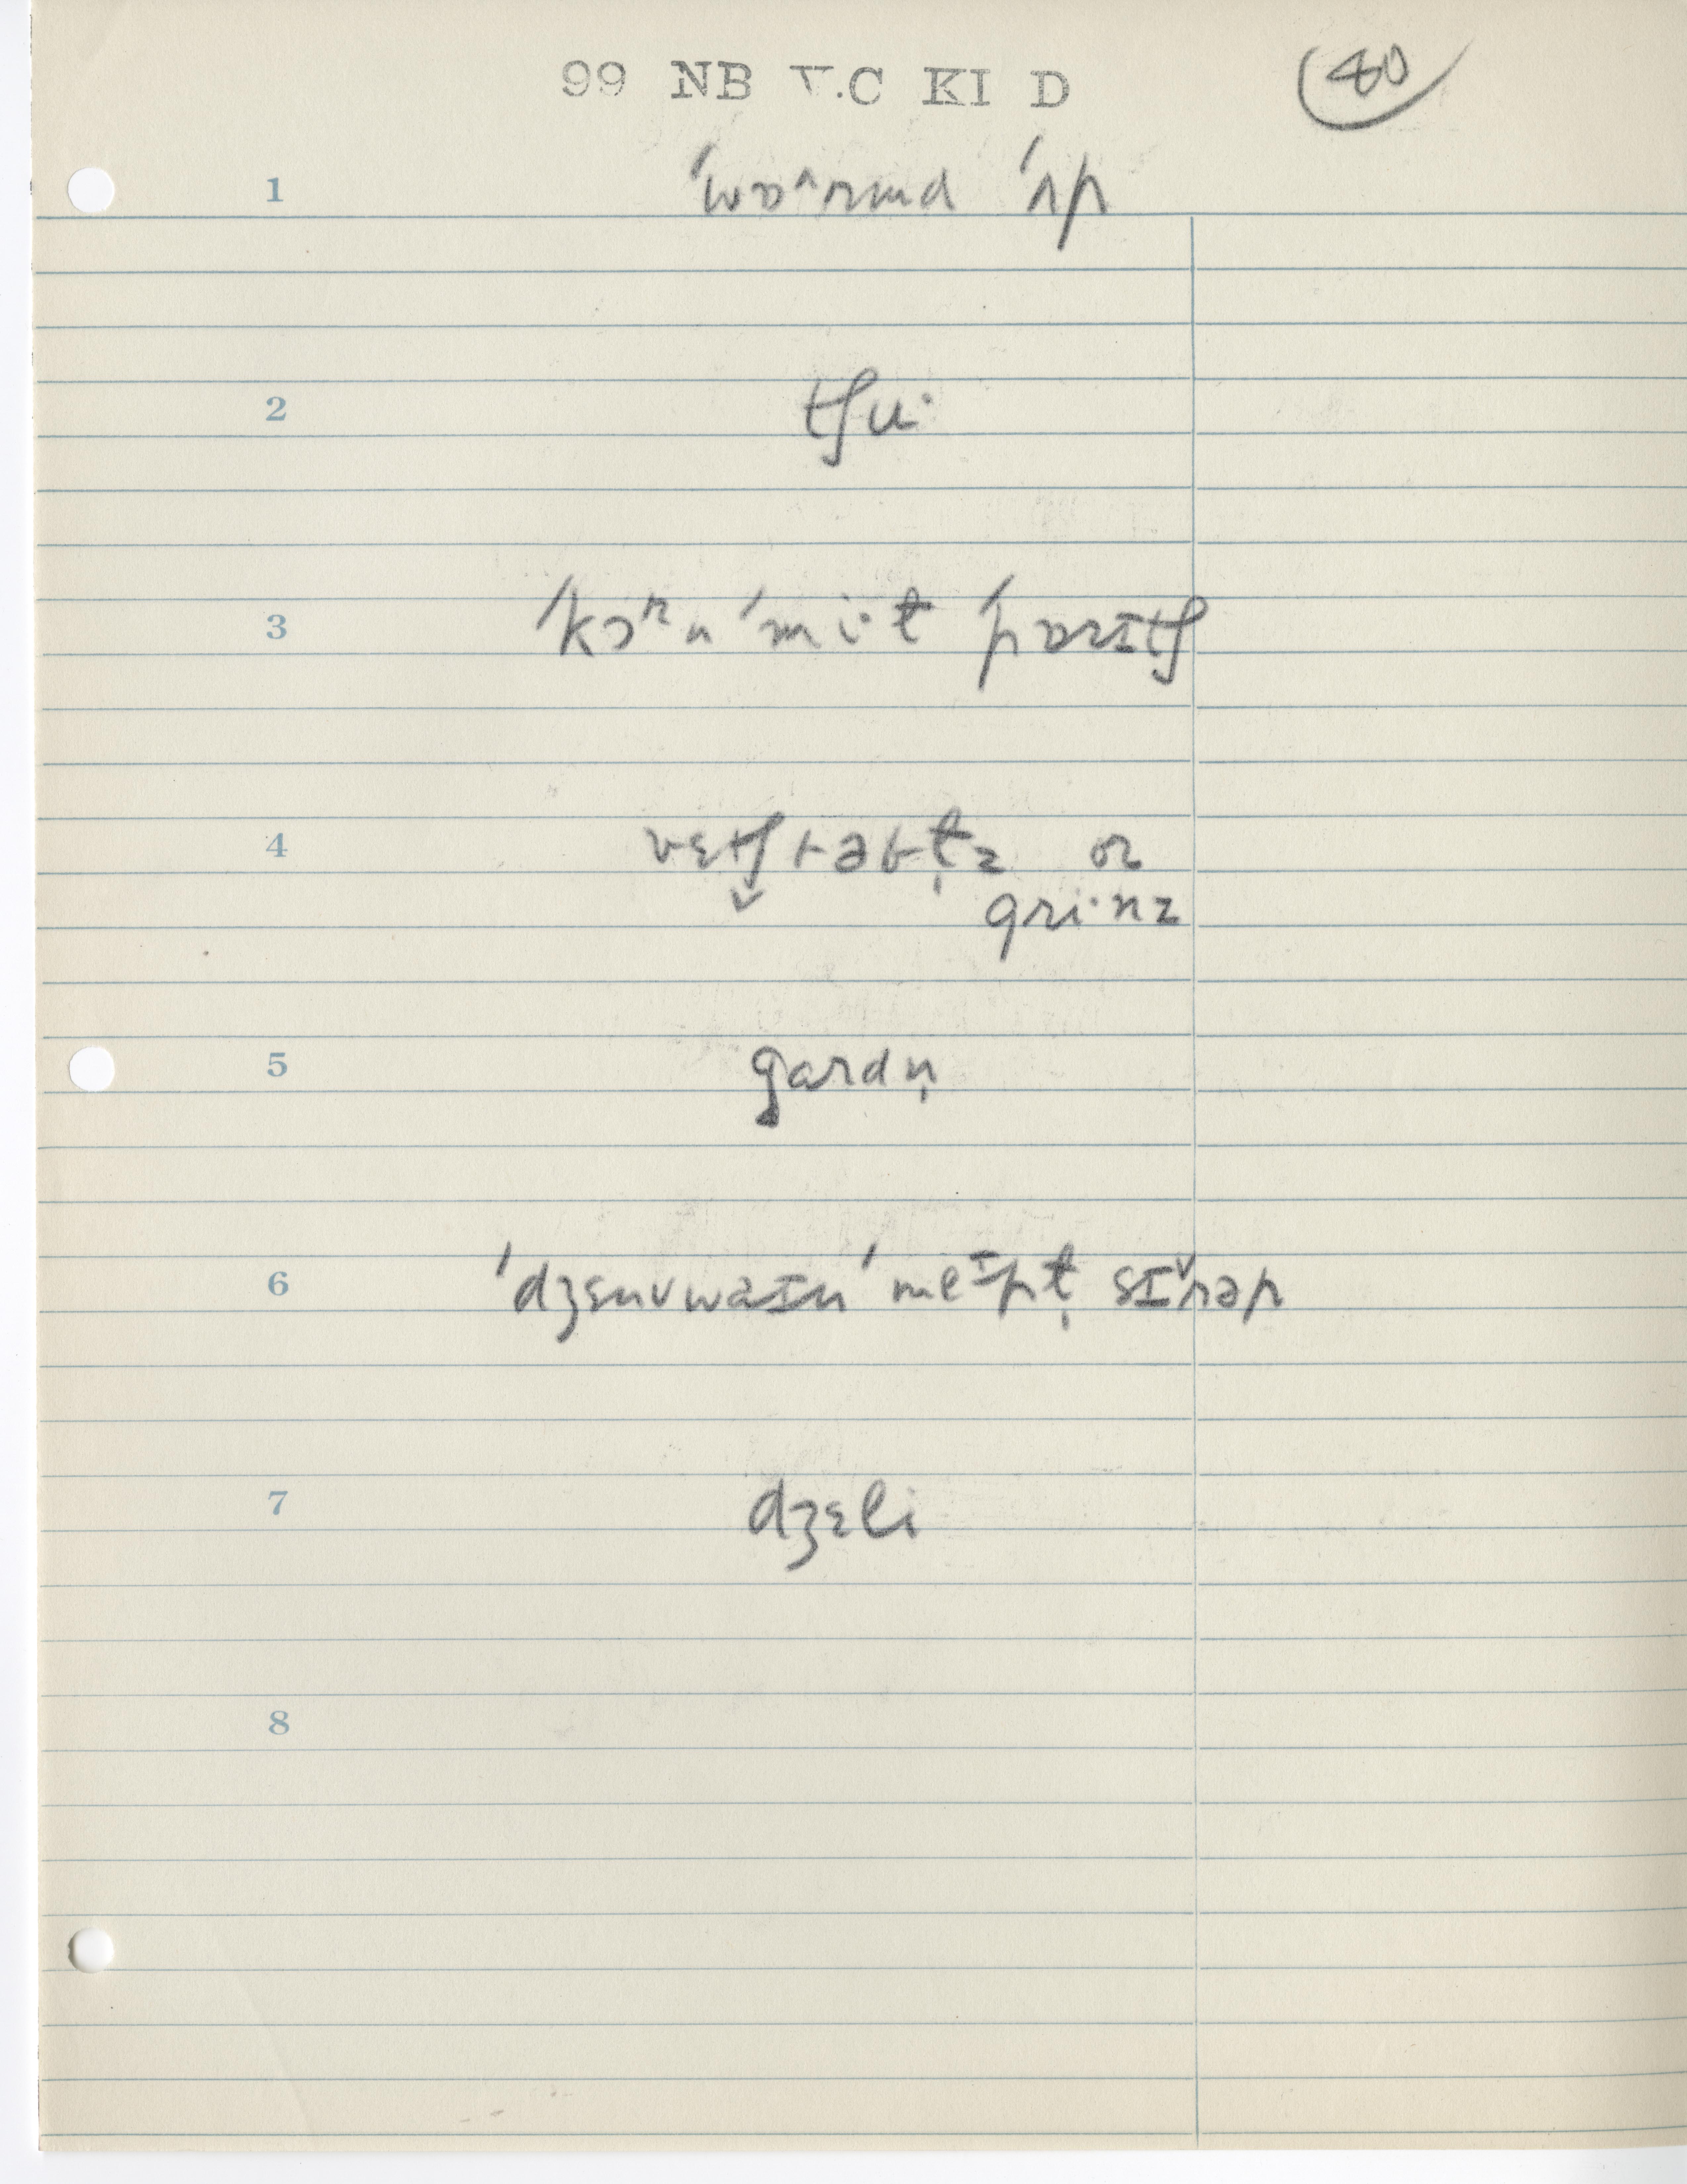 99 NB V.C KI D
40
1 ˈwɒ^rmd ˈʌp
2 tʃu·
3 ˈkɔʳn ˈmi·t ˈpɒrɪtʃ
4 vɛtʃ̬təbɫ̩z or
gri·nz
5 gardn̩
6 ˈdʒɛnvwaɪn ˈmeᶦpɫ̩ sɪ̌rəp
7 dʒɛli
8